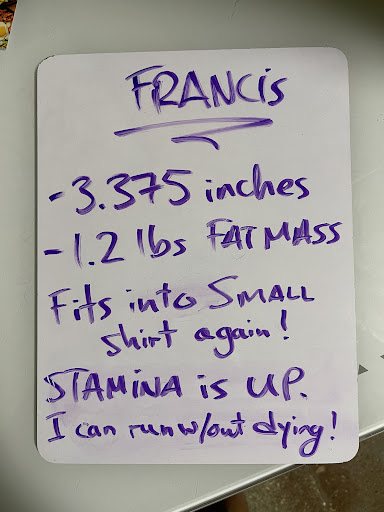 FRANCIS
-3.375 inches
-1.2 lbs FAT MASS
Fits into SMALL
shirt again!
STAMINA is UP.
I can run w/out dying!